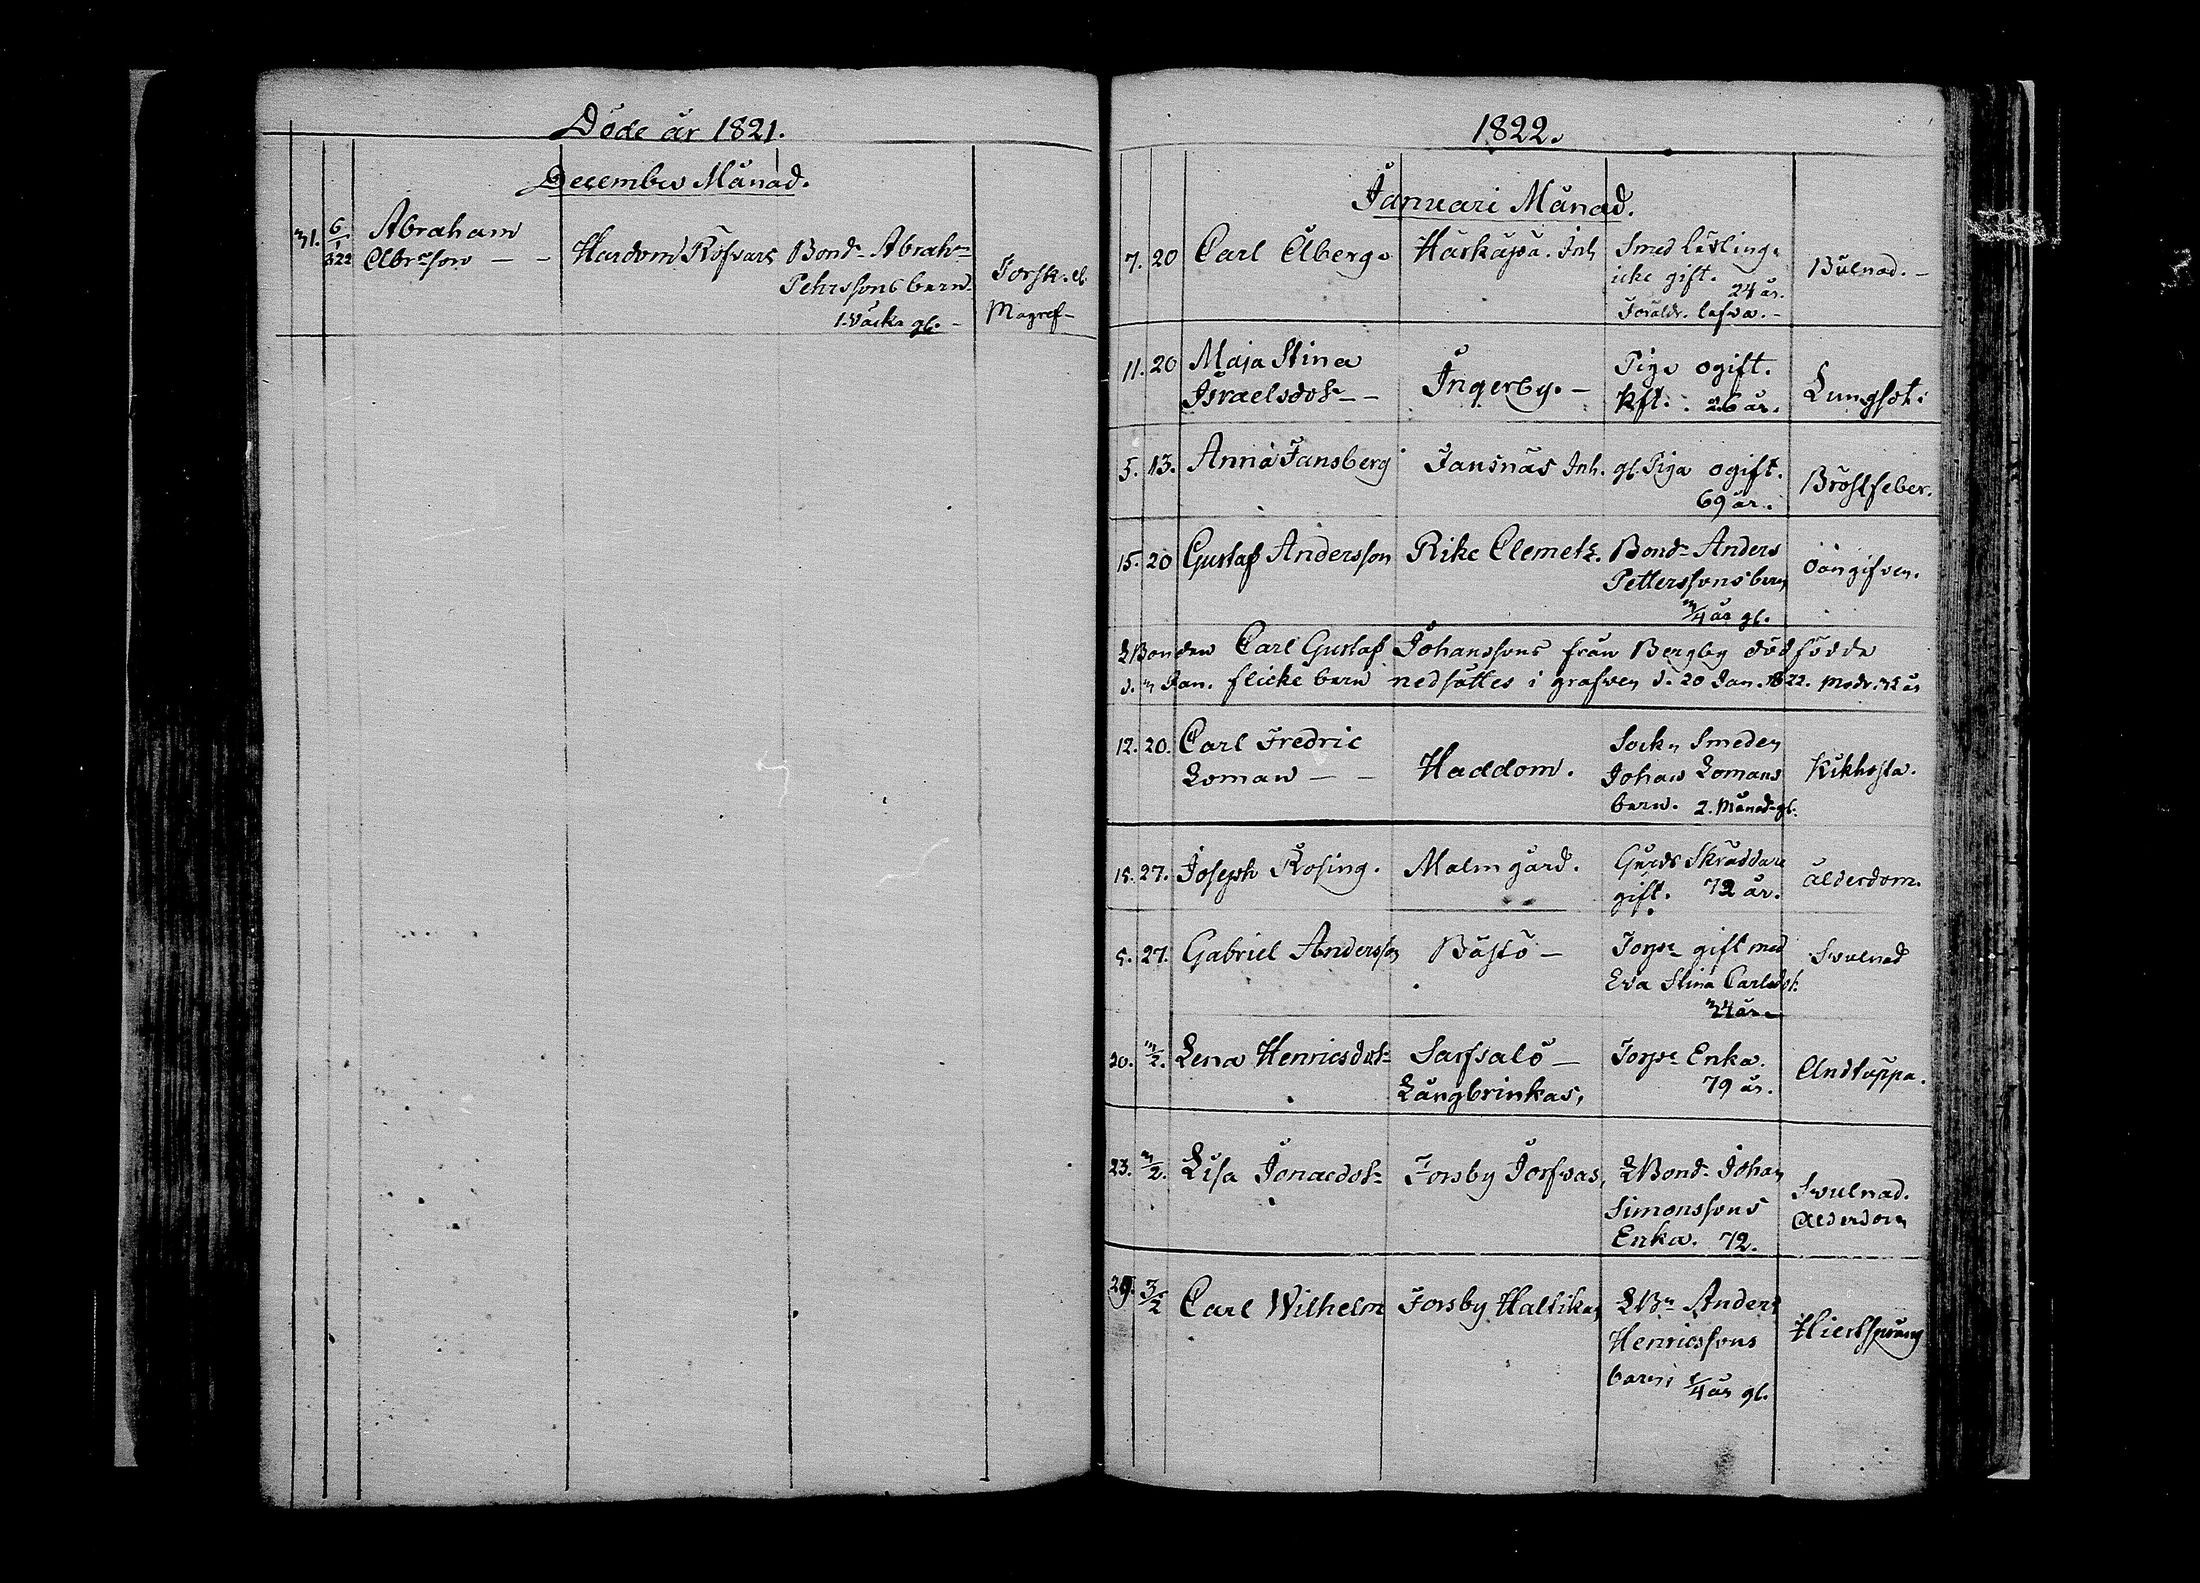 Döde år 1821.
December Månad.
31. 6/1 822 Abraham
Abrsson — — Hardom Rofvars Bond. Abrah.
Pehrssons barn
1. Vecka gl. —
Torsk. el.
Magref —
1822.
Januari Månad.
7. 20 Carl Ålberg. Härkäpä. Inh. Smed Lärling.
icke gift. 24 år.
Föräldr. lefva. —
Bulnad. —
11. 20 Maja Stina
Israelsdotr — — Ingerby. — Piga ogift.
Kft. 26 år. Lungsot.
5. 13. Anna Fansberg Fansnäs Inh. gl. Piga ogift.
69 år. Bröstfeber.
15. 20 Gustaf Andersson Rike Clemets. Bond. Anders
Petterssons barn
3/4 år gl. Oangifven.
LBonden Carl Gustaf Johanssons från Bergby dödfödde
d. 7 Jan. flicke barn nedsattes i grafven d. 20 Jan. 1822. Modr.
12. 20. Carl Fredric
Loman — — Haddom. Sockn Smeden
Johan Lomans
barn. 2. Månad. gl. Kikhosta.
15. 27. Joseph Rosing. Malmgård. Gårds Skräddare
gift. 72 år. Ålderdom.
5. 27. Gabriel Andersson Båstö — Torpr gift med
Eva Stina Carlsdotr.
34 år — Svulnad
20. 3/2. Lena Henricsdotr Sarfsalö —
Långbrinkas, Torpr Enka.
79 år. Andtäppa.
23. 3/2. Lisa Jonaedotr Forsby Torfvas, LBond. Johan
Simonssons
Enka. 72. Svulnad.
Ålderdom
29. 3/2 Carl Wilhelm Forsby Haltikas LBr Anders
Henricssons
barn 1/4 år gl. Hiertsprång